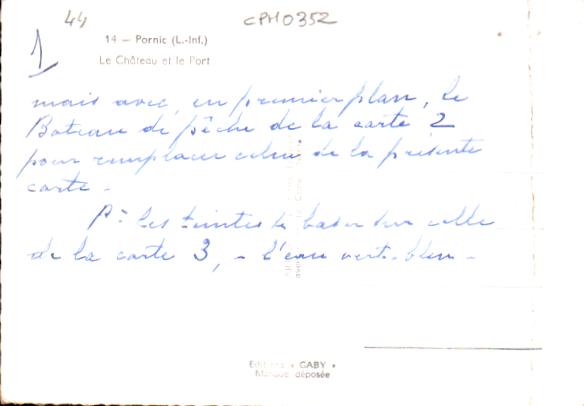 44
CPM0352
1
14. — Pornic (L.-Inf.)
Le Château et le Port
mais avec, en premier plan, le
Bateau de pêche de la carte 2
pour remplacer celui de la présente
carte -
Pr les teintes se baser sur celle
de la carte 3, - l'eau vert-bleu -
Editions « GABY »
Marque déposée